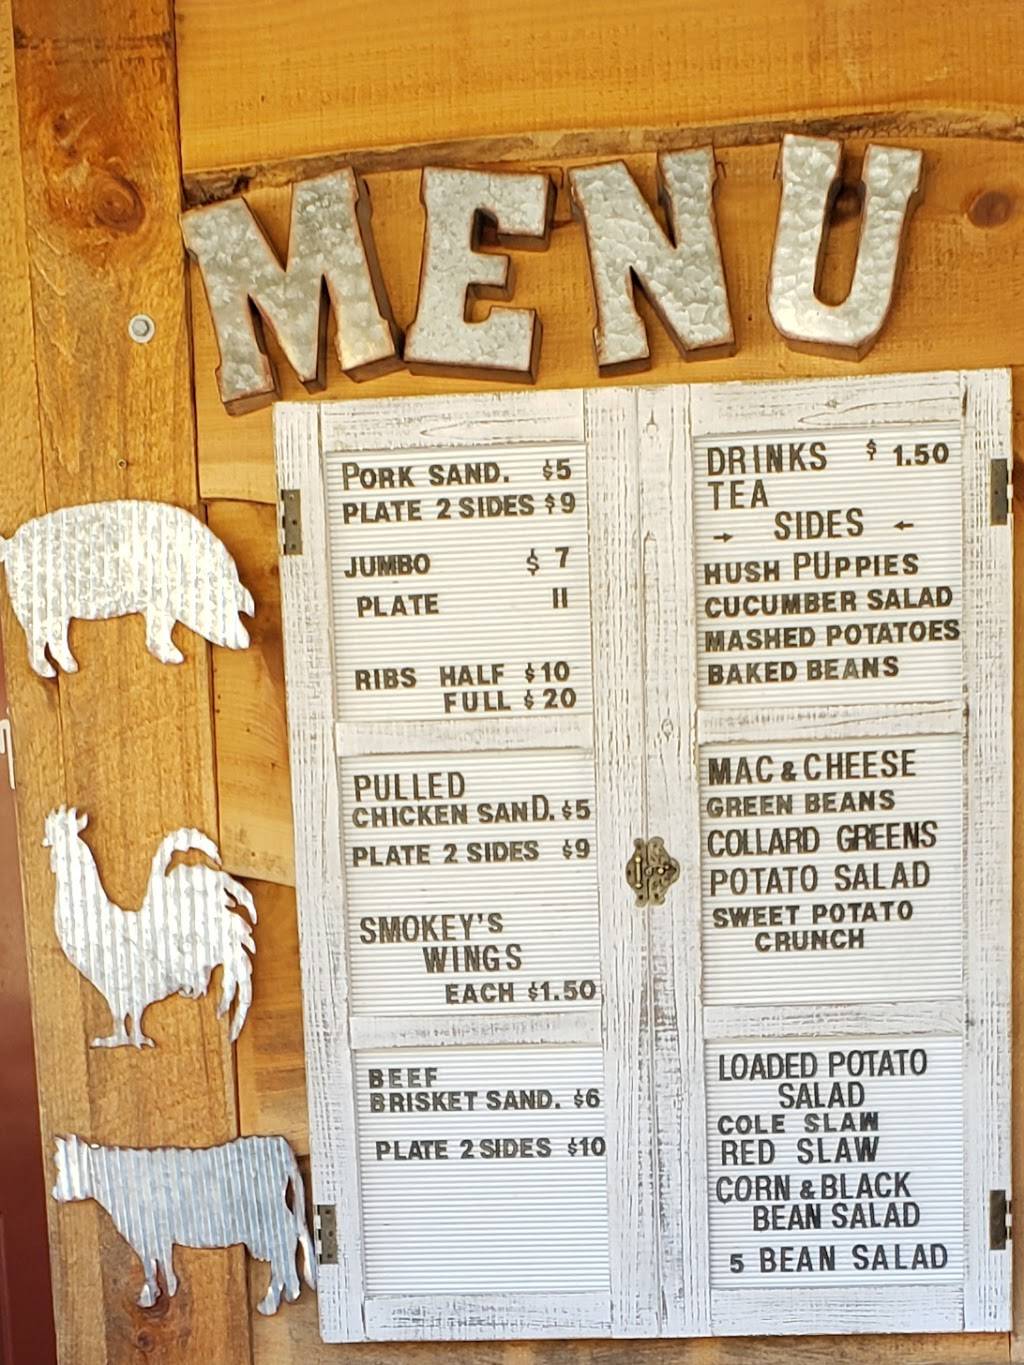 MENU
PORK SAND. $5
PLATE 2 SIDES $9
JUMBO $ 7
PLATE 11
RIBS HALF $10
FULL $20
PULLED
CHICKEN SAND. $5
PLATE 2 SIDES $9
SMOKEY'S
WINGS
EACH $1.50
BEEF
BRISKET SAND. $6
PLATE 2 SIDES $10
DRINKS $ 1.50
TEA
→ SIDES ←
HUSH PUPPIES
CUCUMBER SALAD
MASHED POTATOES
BAKED BEANS
MAC & CHEESE
GREEN BEANS
COLLARD GREENS
POTATO SALAD
SWEET POTATO
CRUNCH
LOADED POTATO
SALAD
COLE SLAW
RED SLAW
CORN & BLACK
BEAN SALAD
5 BEAN SALAD